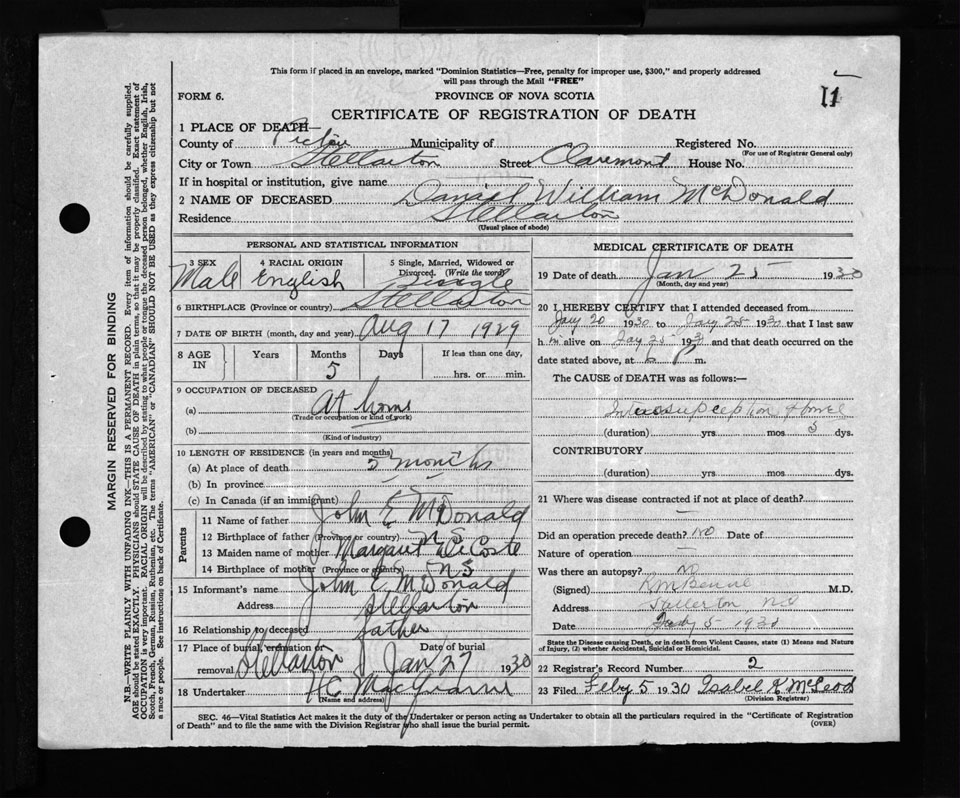 This form if placed in an envelope, marked "Dominion Statistics—Free, penalty for improper use, $300," and properly addressed
will pass through the Mail "FREE"
11
FORM 6.
PROVINCE OF NOVA SCOTIA
CERTIFICATE OF REGISTRATION OF DEATH
1 PLACE OF DEATH—
County of Pictou Municipality of Registered No.
(For use of Registrar General only)
City or Town Stellarton Street Claremont House No.
If in hospital or institution, give name
2 NAME OF DECEASED Daniel William McDonald
Residence Stellarton
(Usual place of abode)
PERSONAL AND STATISTICAL INFORMATION
3 SEX Male
4 RACIAL ORIGIN English
5 Single, Married, Widowed or Divorced. (Write the word) Single
6 BIRTHPLACE (Province or country) Stellarton
7 DATE OF BIRTH (month, day and year) Aug 17 1929
8 AGE IN Years Months 5 Days If less than one day,
hrs. or min.
9 OCCUPATION OF DECEASED
(a) At home
(Trade or occupation or kind of work)
(b)
(Kind of industry)
10 LENGTH OF RESIDENCE (in years and months)
(a) At place of death 5 months
(b) In province
(c) In Canada (if an immigrant)
Parents
11 Name of father John E McDonald
12 Birthplace of father (Province or country) N S
13 Maiden name of mother Margaret DeCoste
14 Birthplace of mother (Province or country) N S
15 Informant's name John E McDonald
Address Stellarton
16 Relationship to deceased father
17 Place of burial, cremation or removal Stellarton Date of burial Jan 27 1930
18 Undertaker H C
(Name and address)
MEDICAL CERTIFICATE OF DEATH
19 Date of death Jan 25 1930
(Month, day and year)
20 I HEREBY CERTIFY that I attended deceased from
Jany 20 1930 to Jany 25 1930 that I last saw
h im alive on Jany 25 193 and that death occurred on the
date stated above, at 6 P m.
The CAUSE of DEATH was as follows:—
(duration) yrs mos 5 dys.
CONTRIBUTORY
(duration) yrs mos dys.
21 Where was disease contracted if not at place of death?
Did an operation precede death? NO Date of
Nature of operation
Was there an autopsy? NO
(Signed) M.D.
Address N S
Date 5 1930
State the Disease causing Death, or in death from Violent Causes, state (1) Means and Nature
of Injury, (2) whether Accidental, Suicidal or Homicidal.
22 Registrar's Record Number 2
23 Filed Feby 5 1930 Isabel K McLeod
(Division Registrar)
SEC. 46—Vital Statistics Act makes it the duty of the Undertaker or person acting as Undertaker to obtain all the particulars required in the "Certificate of Registration
of Death" and to file the same with the Division Registrar who shall issue the burial permit. (OVER)
MARGIN RESERVED FOR BINDING
N.B.—WRITE PLAINLY WITH UNFADING INK—THIS IS A PERMANENT RECORD. Every item of information should be carefully supplied.
AGE should be stated EXACTLY. PHYSICIANS should STATE CAUSE OF DEATH in plain terms, so that it may be properly classified. Exact statement of
OCCUPATION is very important. RACIAL ORIGIN will be described by stating to what people or tongue the deceased person belonged, whether English, Irish,
Scotch, French, German, Russian, Ruthenian, etc. The terms "AMERICAN" or "CANADIAN" SHOULD NOT BE USED as they express citizenship but not
a race or people. See instructions on back of Certificate.